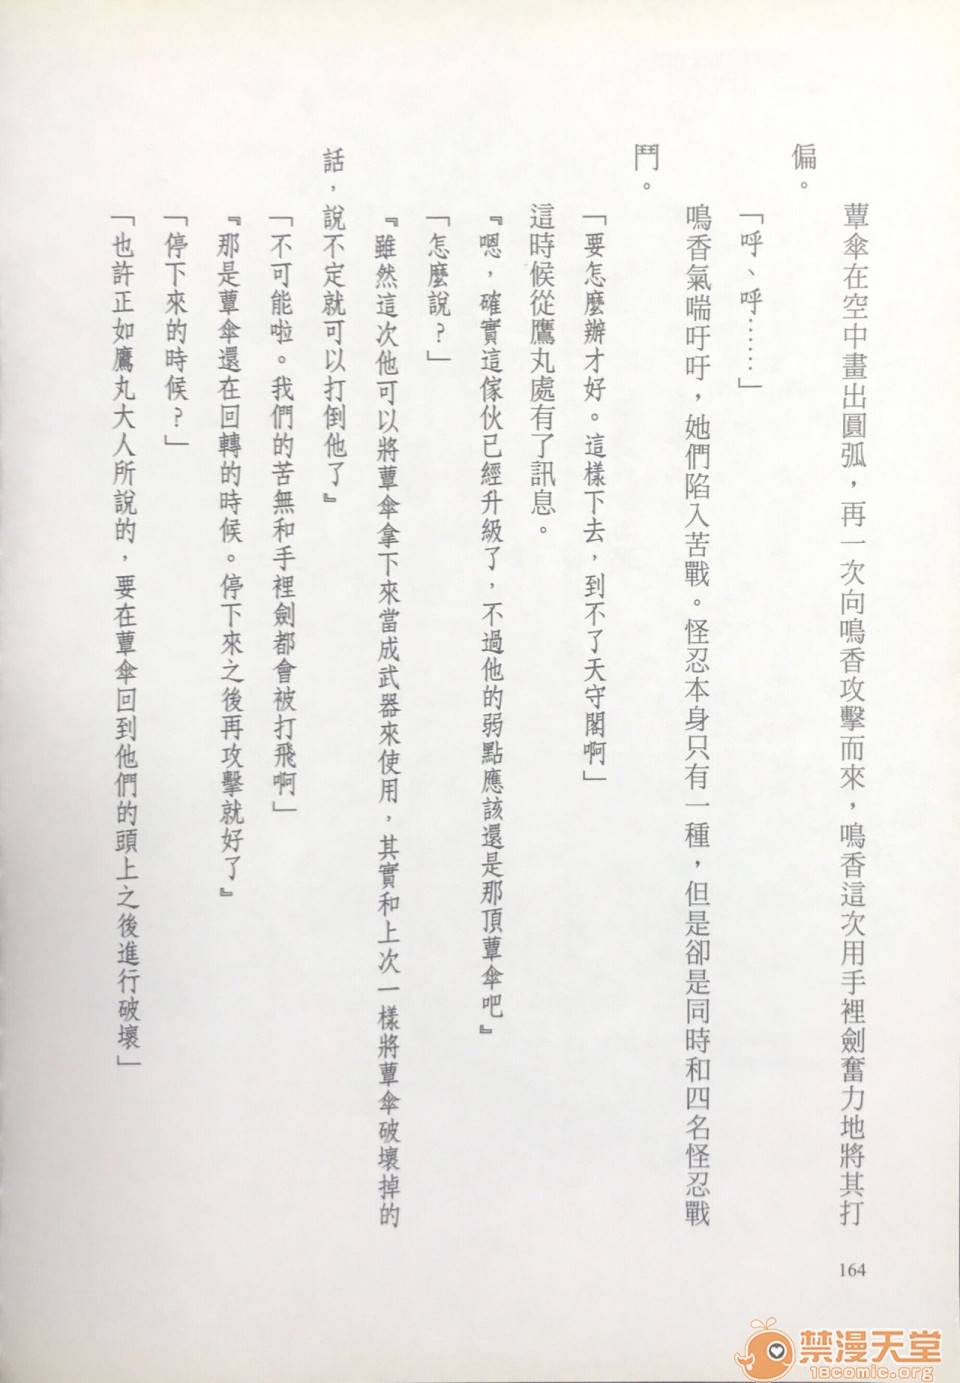 蕈傘在空中畫出圓弧，再一次向鳴香攻擊而來，鳴香這次用手裡劍奮力地將其打
偏。
「呼、呼……」
鳴香氣喘吁吁，她們陷入苦戰。怪忍本身只有一種，但是卻是同時和四名怪忍戰
鬥。
「要怎麼辦才好。這樣下去，到不了天守閣啊」
這時候從鷹丸處有了訊息。
『嗯，確實這傢伙已經升級了，不過他的弱點應該還是那頂蕈傘吧』
「怎麼說？」
『雖然這次他可以將蕈傘拿下來當成武器來使用，其實和上次一樣將蕈傘破壞掉的
話，說不定就可以打倒他了』
「不可能啦。我們的苦無和手裡劍都會被打飛啊」
『那是蕈傘還在回轉的時候。停下來之後再攻擊就好了』
「停下來的時候？」
「也許正如鷹丸大人所說的，要在蕈傘回到他們的頭上之後進行破壞」
164
禁漫天堂
18comic.org